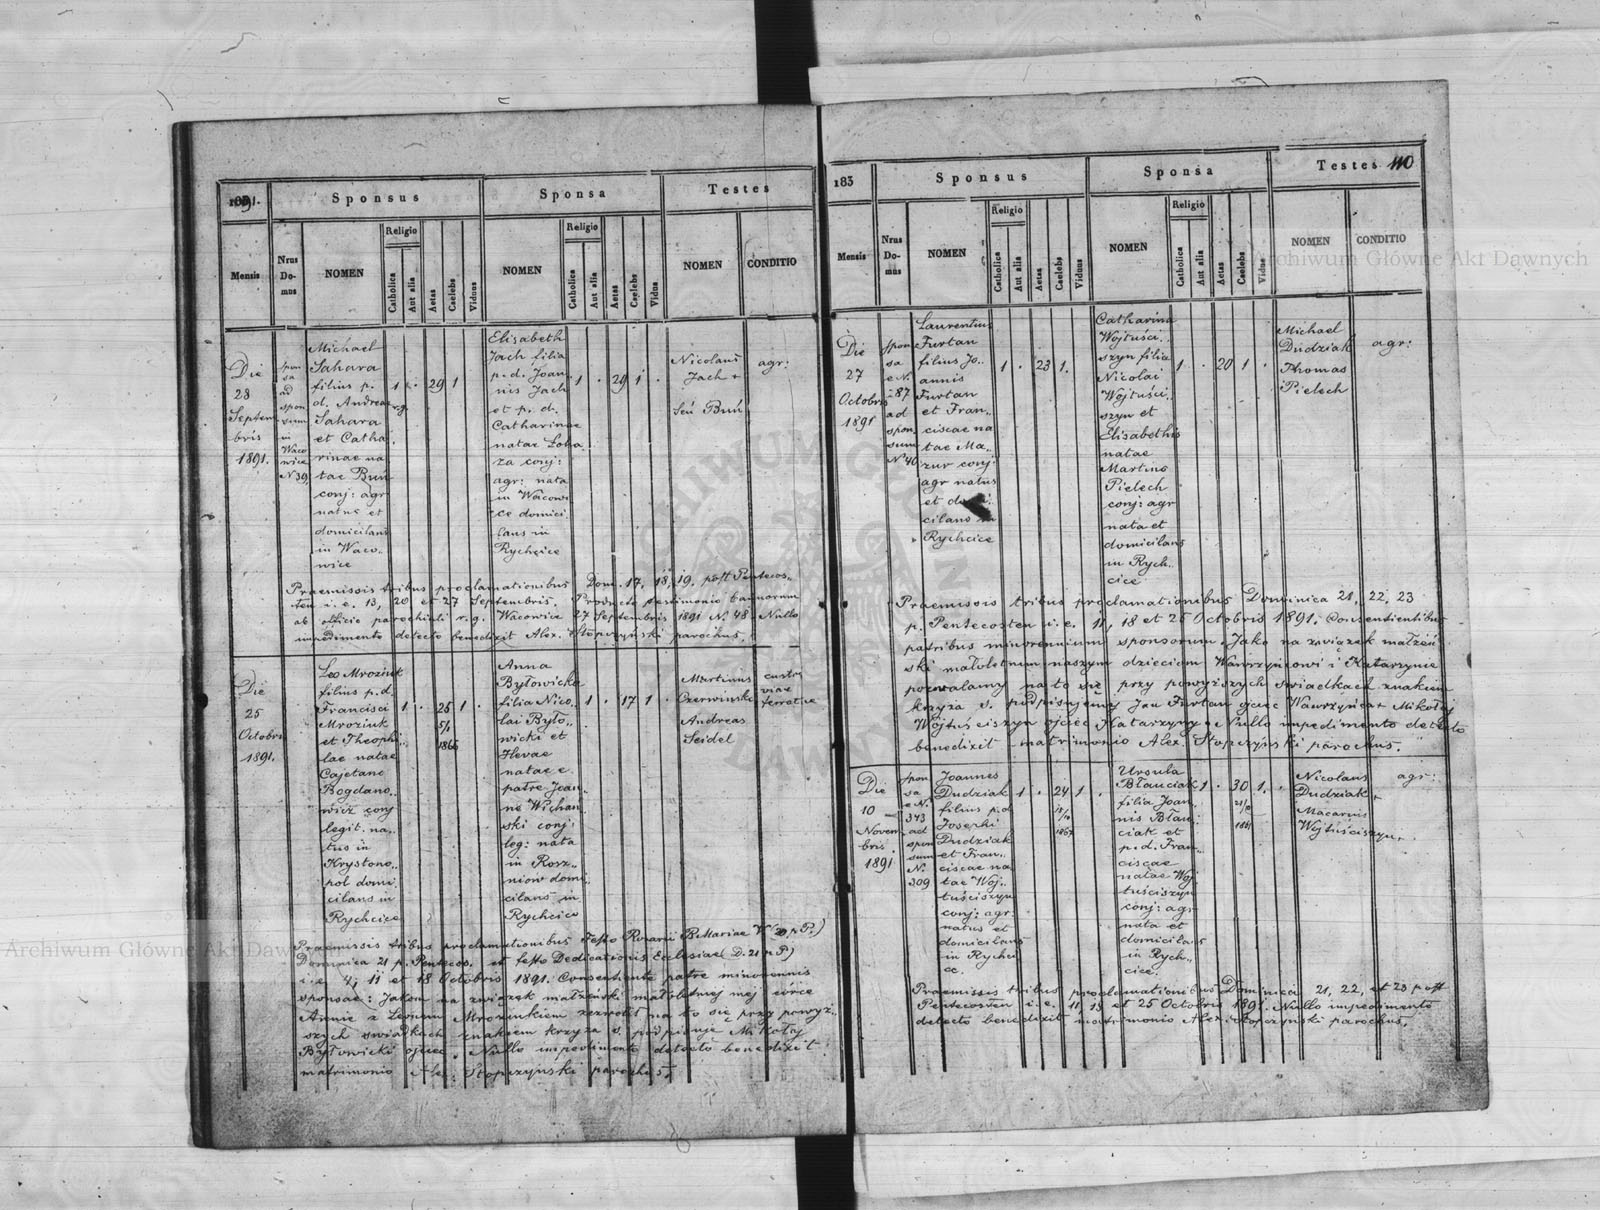 1891.
Sponsus
Sponsa
Testes
Mensis
Nrus Do- mus
NOMEN
Religio
Catholica
Aut alia
Aetas
Caelebs
Viduus
NOMEN
Religio
Catholica
Aut alia
Aetas
Caelebs
Vidua
NOMEN
CONDITIO
Die
28
Septem
bris
1891.
spon
sa
ad
spon
sum
in
Waco
wice
N 39,
Michael
Sahara
filius p.
d. Andreae
Sahara
et Catha
rinae na
tae Buń
conj: agr
natus et
domicilans
in Waco„
wice
1
r.g.
29
1
Elisabeth
Jach filia
p. d. Joan„
nis Jach
et p. d.
Catharinae
natae Loba
za conj:
agr: nata
in Wacowi
ce domici„
lans in
Rychcice
1
29
1
Nicolaus
Jach +
Seń Buń
agr:
Praemissis tribus proclamationibus Dom. 17, 18, 19. post Pentecos„
ten i. e. 13, 20 et 27 Septembris. Producto testimonio bannorum
ab officio parochiali r. g. Wacowice 27 Septembris 1891 N. 48 Nullo
impedimento detecto benedixit Alex. Stopczyński parochus.
Die
25
Octobris
1891.
Leo Mroziuk
filius p.d.
Francisci
Mroziuk
et Theophi„
lae natae
Cajetano
Bogdano„
wicz conj
legit. na„
tus in
Krystono„
pol domi
cilans in
Rychcice
1
25
5/1
1866
1
Anna
Byłowicka
filia Nico„
lai Było„
wicki et
Hevae
natae e
patre Joan„
ne Wichań
ski conj:
leg: nata
in Rosz„
niow domi„
cilans in
Rychcice
1
17
1
Martinus
Czerwinski
Andreas
Seidel
custos
viae
ferratae
Praemissis tribus proclamationibus Festo Rosarii B. Mariae V. (D. 20 p P.)
Dominica 21 p. Pentecos. et festo Dedicationis Ecclesiae (D. 21 p P)
i. e 4, 11 et 18 Octobris 1891. Consentiente patre minorennis
sponsae: Jakom na związek małżeński małoletniej mej córce
Annie z Leonem Mroziukiem zezwolił na to się przy powyż„
szych świadkach znakiem krzyża s. podpisuje Mikołaj
Byłowicki ojciec. Nullo impedimento detecto benedixit
matrimonio Alex. Stopczyński parochus.
183
Sponsus
Sponsa
Testes
110
Mensis
Nrus Do- mus
NOMEN
Religio
Catholica
Aut alia
Aetas
Caelebs
Viduus
NOMEN
Religio
Catholica
Aut alia
Aetas
Caelebs
Vidua
NOMEN
CONDITIO
Die
27
Octobris
1891
spon
sa
e N.
87
ad
spon„
sum
N 40
Laurentius
Furtan
filius Jo„
annis
Furtan
et Fran„
ciscae na
tae Ma„
zur conj:
agr natus
et domi
cilans in
Rychcice
1
23
1.
Catharina
Wojtuści„
szyn filia
Nicolai
Wojtuści„
szyn et
Elisabethis
natae
Martino
Pielech
conj: agr
nata et
domicilans
in Rych„
cice
1
20
1
Michael
Dudziak
Thomas
Pielech
agr:
Praemissis tribus proclamationibus Dominica 21, 22, 23
p. Pentecosten i. e. 11, 18 et 25 Octobris 1891. Consentientibus
patribus minorennium sponsorum. Jako na związek małżeń„
ski małoletnim naszym dzieciom Wawrzyńcowi i Katarzynie
pozwalamy na to się przy powyższych świadkach znakiem
krzyża s. podpisujemy Jan Furtan ojciec Wawrzyńca + Mikołaj
Wojtuściszyn ojciec Katarzyny. Nullo impedimento detecto
benedixit matrimonio Alex. Stopczyński parochus.
Die
10
Novem
bris.
1891
spon
sa
e N.
343
ad
spon
sum
N.
309
Joannes
Dudziak
filius p.d.
Josephi
Dudziak
et Fran„
ciscae na„
tae Woj„
tuściszyn
conj: agr:
natus et
domicilans
in Rychci
ce.
1
24
1867
1
Ursula
Błauciak
filia Joan„
nis Błau„
ciak et
p. d. Fran„
ciscae
natae Woj
tuściszyn
conj: agr
nata et
domicilans
in Rych„
cice.
1
30
1861
1.
Nicolaus
Dudziak +
Macarius
Wojtuściszyn +
agr:
Praemissis tribus proclamationibus Dominica 21, 22, et 23 post
Pentecosten i. e. 11, 18 et 25 Octobris 1891. Nullo impedimento
detecto benedixit matrimonio Alex. Stopczyński parochus.
Archiwum Główne Akt Dawnych
Archiwum Główne Akt Dawnych